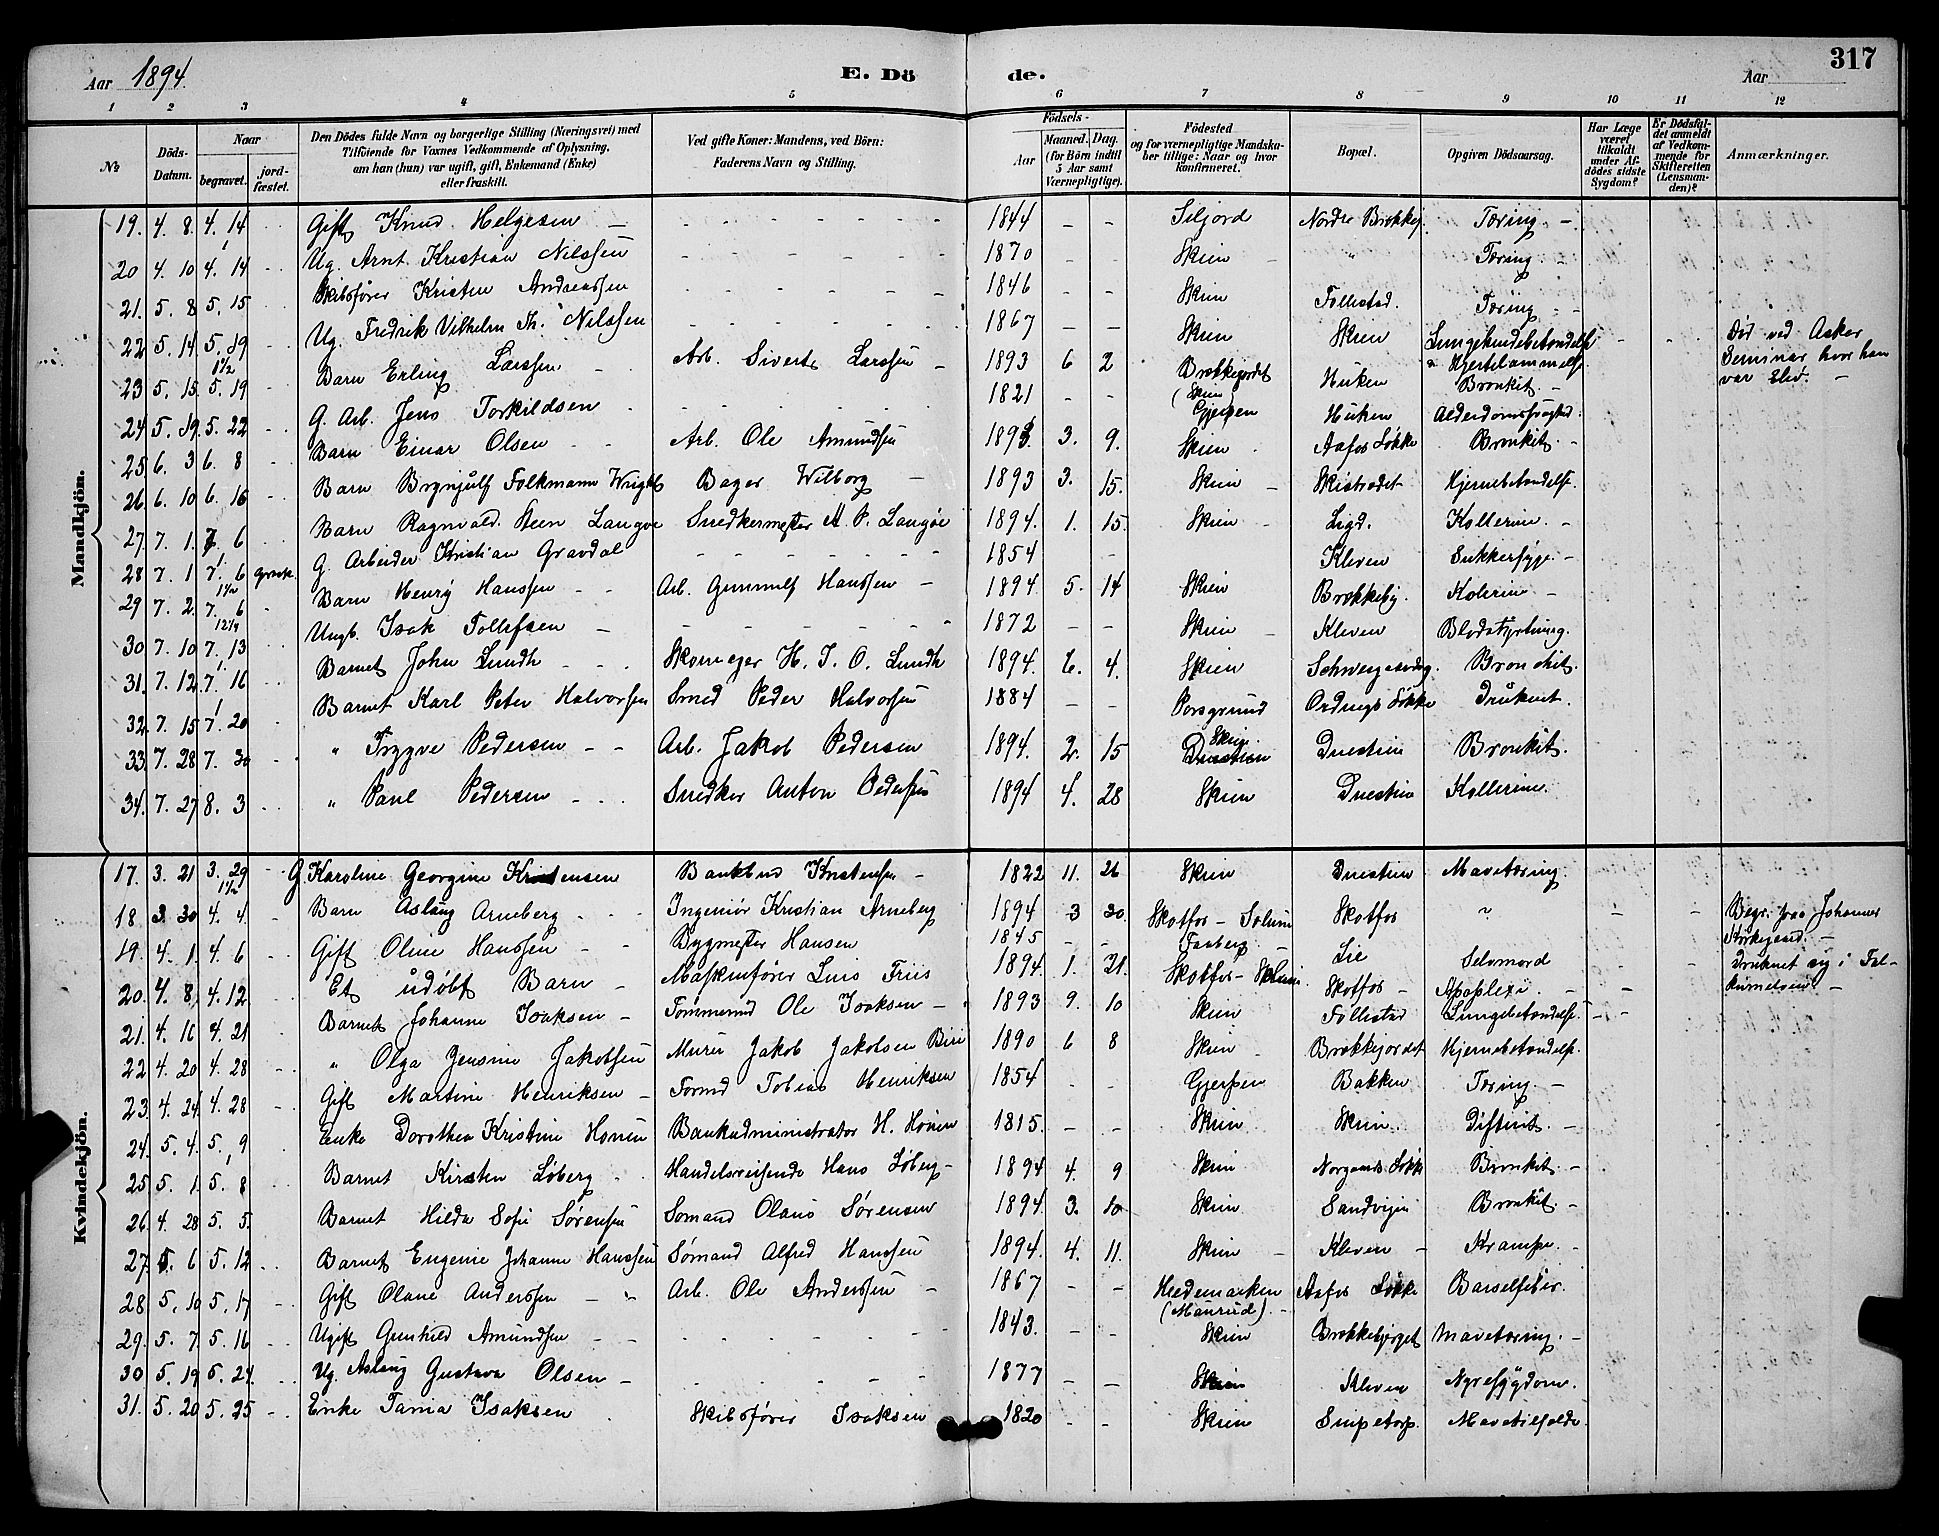 Aar 1894. E. Dö de. Aar 317
1 2 3 4 5 6 7 8 9 10 11 12
№ Döds-Datum. Naar begravet. jordfæstet. Den Dödes fulde Navn og borgerlige Stilling (Næringsvei) med Tilföiende for Voxnes Vedkommende af Oplysning, om han (hun) var ugift, gift, Enkemand (Enke) eller fraskilt. Ved gifte Koner: Mandens, ved Börn: Faderens Navn og Stilling. Födsels- Aar Maaned. Dag. (for Börn indtil 5 Aar samt Værnepligtige). Födested og for værnepligtige Mandskaber tillige: Naar og hvor konfirmeret. Bopæl. Opgiven Dödsaarsag. Har Læge været tilkaldt under Afdödes sidste Sygdom? Er Dödsfaldet anmeldt af Vedkommende for Skifteretten (Lensmanden)? Anmærkninger.
Mandkjön.
19. 4. 8. 4. 14 Gift Knud Helgesen 1844 - - Siljord Nordre Brekkej. Tæring -
20 4. 10 4. 14 Ug. Arnt Kristian Nilssen 1870 Skien " Tæring -
21. 5. 8 5. 15 Skibsfører Kristen Andreassen 1846 Skien Follestad. Tæring -
22 5. 14 5. 19 Ug. Fredrik Vilhelm Th. Nilssen 1867 - - Skien Skien Lungehindebetændelse & Hjertelammelse Död ved Asker Seminar hvor han var Elev. -
23 5. 15. 5. 19 1½ Barn Erling Larssen Arb. Siverts Larssen 1893 6 2 Brekkejordet (Skien) Huken Bronkit. -
24 5. 19. 5. 22 G. Arb. Jens Torkildsen 1821 - - Gjerpen Huken Alderdomssvaghed.
25 6. 3 6. 8 Barn Einar Olsen Arb. Ole Amundsen 1893 3. 9. Skien Aafos Løkke Bronkit. -
26. 6. 10 6. 16 Barn Brynjulf Folkmann Wright Bager Wilborg 1893 3. 15. Skien Skistredet Hjernebetændelse.
27. 7. 1. 7. 6 Barn Ragnvald Steen Langøe Snedkermester A. P. Langøe 1894. 1. 15. Skien Ligd. Kollerine. -
28 7. 1 7. 6 G. Arbeider Kristian Gravdal 1854 - Kleven Sukkersyge -
29 7. 2. 7. 6 1½ Barn Henry Hanssen Arb. Gunnulf Hanssen 1894. 5. 14 Skien Brekkeby. Kolerine -
30 7. 10 7. 13 12½ Ungk. Isak Tollefsen 1872 - - Skien Kleven Blodstyrtning.
31. 7. 12 7. 16 Barnet John Lundh Skomager H. J. O. Lundh 1894. 4. Skien Bronchit.
32. 7. 15 7. 20 Barnet Karl Peter Halvorsen Smed Peder Halvorsen 1884 - - Porsgrund Ordrups Løkke Druknet.
33. 7. 28 7. 30 " Trygve Pedersen Arb. Jakob Pedersen 1894. 2. 15 Skien Duestien Duestien Bronkit.
34. 7. 27 8. 3 " Paul Pedersen Snedker Anton Pedersen 1894 4. 28 Skien Duestien Kollerine.
Kvindekjön.
17. 3. 21 3. 29 G. Karoline Georgine Kristensen Bankbud Kristensen - 1822 11. 26 Skien Duestien Mavetæring.
18. 3. 30 4. 4 1½ Barn Aslaug Arneberg Ingeniør Kristian Arneberg 1894 3 20. Skotfos - Solum Skotfos " Begr. paa Johannes Kirkegaard. -
19. 4. 1. 4. 6 Gift Oline Hanssen Bygmester Hansen 1845 - - Faaberg Lie Selvmord Druknet sig i
20. 4. 8. 4. 12 Et udøbt Barn - Maskinfører Luis Friis 1894. 1. 21. Skotfos - Skotfos - Apoplexi -
21. 4. 16 4. 21 Barnet Johanne Isaksen - Tømmermd Ole Isaksen 1893 9. 10 Skien Follestad Lungebetændelse.
22 4. 20 4. 28 " Olga Jensine Jakobsen Murer Jakob Jakobsen Biri 1890 6 8 Skien Brekkejordet Hjernebetændelse.
23. 4. 24 4. 28 Gift Martine Henriksen - Formd Tobias Henriksen 1854 - - Gjerpen Bakken Tæring. -
24. 5. 4. 5. 9 Enke Dorothea Kristine Honen Bankadministrator H. Honen 1815. - - Skien Skien. Difterit. -
25 5. 1. 5. 8 Barnet Kirsten Löberg Handelsreisende Hans Löberg - 1894 4. 9 Skien Norgaards Løkk Bronkit. -
26. 4. 28 5. 5. Barnet Hilda Sofie Sørensen Sømand Olaus Sørensen 1894. 3. 10 Skien. Sandvigen Bronkit. -
27. 5. 6 5. 12 Barnet Eugenie Johanne Hanssen Sømand Alfred Hanssen 1894. 4. 11. Skien Kleven - Krampe. -
28 5. 10 5. 17 Gift Olane Anderssen - Arb. Ole Anderssen 1867 - - Hedemarken (Maurud). Aafos Løkke Barselfeber.
29. 5. 7 5. 16 Ugift Gunhild Amundsen 1843. - - Skien Brekkebjerget Mavetæring. -
30 5. 19 5. 24. Ug. Aslaug Gustava Olsen - 1877 - - Skien Kleven Nyresygdom.
31. 5. 20 5. 25 Enke Tamia Isaksen Skibsfører Isaksen 1820 - - Skien Snipetorp. Mavetilfælde